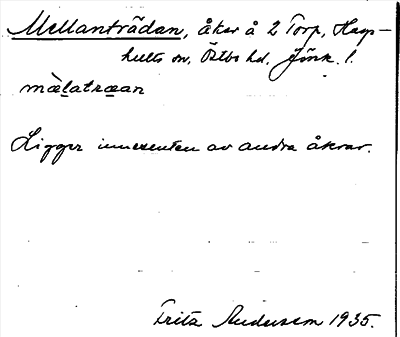 Mellanträdan, åker å 2 Torp, Hags-
hults sn, Östbo hd. Jönk. l.
mälatræan
Ligger innesluten av andra åkrar.
Fritz Andersson 1935.